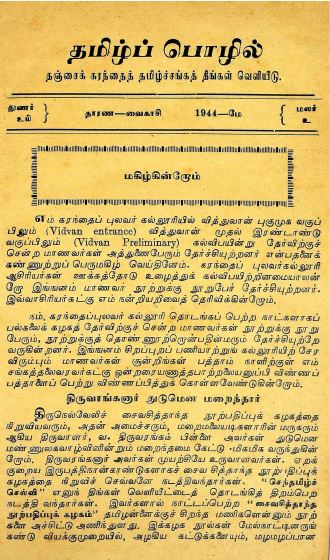 தமிழ்ப் பொழில்
தஞ்சைக் கரந்தைத் தமிழ்ச்சங்கத் திங்கள் வெளியீடு.
துணர்
தாரண—வைகாசி 1944—மே
மலர்
உ
மகிழ்கின்றோம்
எம் கரந்தைப் புலவர் கல்லூரியில் வித்துவான் புகுமுக வகுப்
பிலும் (Vidvan entrance) வித்துவான் முதல் இரண்டாண்டு
வகுப்பிலும் (Vidvan Preliminary) கல்விபயின்று தேர்விற்குச்
சென்ற மாணவர்கள் அத்துணைபேரும் தேர்ச்சியுற்றனர் என்பதனைக்
கண்ணுற்றுப் பெருமகிழ் வெய்தினேம். கரந்தைப் புலவர்கல்லூரி
ஆசிரியர்கள் ஊக்கத்தோடு உழைத்துக் கல்விபயிற்றினமையாலன்
றே இங்ஙனம் மாணவர் நூற்றுக்கு நூறுபேர் தேர்ச்சியுற்றனர்.
இவ்வாசிரியர்கட்கு எம் நன்றியறிவைத் தெரிவிக்கின்றேம்.
நம், கரந்தைப்புலவர் கல்லூரி தொடங்கப் பெற்ற நாட்களாகப்
பல்கலைக் கழகத் தேர்விற்குச் சென்ற மாணவர்கள் நூற்றுக்கு நூறு
பேரும், நூற்றுக்குத் தொண்ணூற்றென்பதின்மரும் தேர்ச்சியுற்றே
வருகின்றனர். இங்ஙனம் சிறப்புறப் பணியாற்றுங் கல்லூரியிற் சேர
விரும்பும் மாணவர்கள் குன்றிங்கள் பத்தாம் நாளிற்குள் எம்
சங்கத்தலைவரவர்கட்கு ஒன்றரையணாத்தபாற்றலையனுப்பி விண்ணப்
பத்தாளைப் பெற்று விண்ணப்பித்துக் கொள்ளவேண்டுகின்றேம்.
திருவரங்கனார் துடுமென மறைந்தார்
திருநெல்வேலிச் சைவசித்தாந்த நூற்பதிப்புக் கழகத்தை
நிறுவியவரும், அதன் அமைச்சரும், மறைமலையடிகளாரின் மருகரும்
ஆகிய திருவாளர், வ. திருவரங்கம் பிள்ளை அவர்கள் துடுமென
மண்ணுலகவாழ்வினின்றும் மறைந்தமை கேட்டு மிகமிக வருந்துகின்
றேம். திருவரங்கனார் அவர்கள் முயற்சியே உருவானவர்கள். ஏறக்
குறைய இருபத்திநான்காண்டுகளாகச் சைவ சித்தாந்த நூற்பதிப்புக்
கழகத்தை நிறுவிச் செவ்வனே நடத்திவந்தார்கள். "செந்தமிழ்ச்
செல்வி" எனுந் திங்கள் வெளியீட்டைத் தொடங்கித் திறம்பெற
நடத்தி வந்தார்கள். இவர்களால் நாட்டப்பெற்ற "சைவசித்தாந்த
நூற்பதிப்புக் கழகம்" தமிழன்னைக்குச் சிறந்த மணிகளென்னும் நூற்
களை அச்சிட்டு அணிந்துளது. இக்கழக நூல்கள் மேல்நாட்டினருங்
கண்டு வியக்குமுறையில், அழகிய கட்டுங்களையும், மழமழப்பான